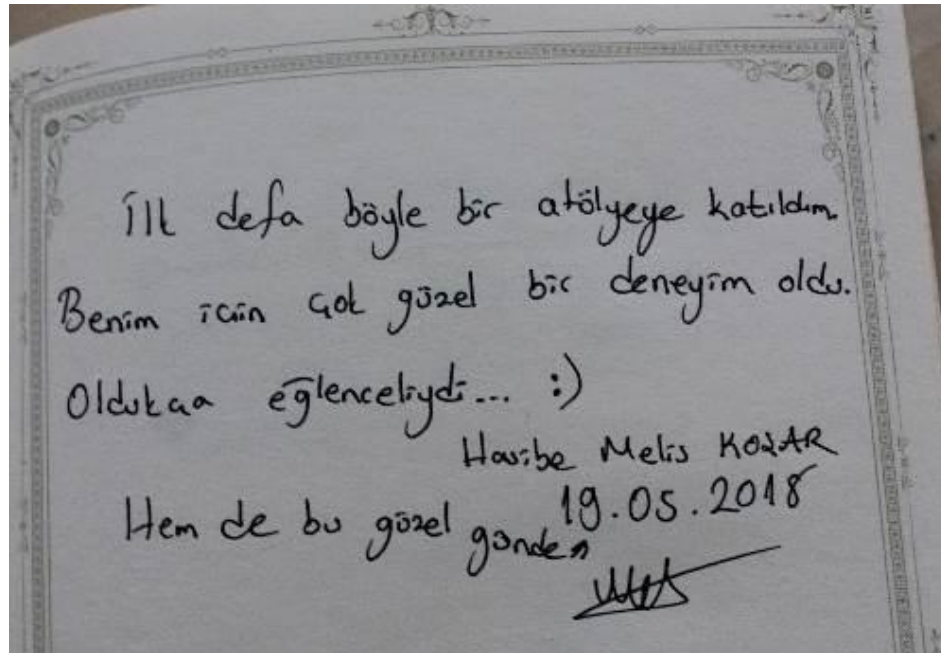 İlk defa böyle bir atölyeye katıldım.
Benim için çok güzel bir deneyim oldu.
Oldukça eğlenceliydi... :)
Melis KOZAR
Hem de bu güzel günde 19.05.2018